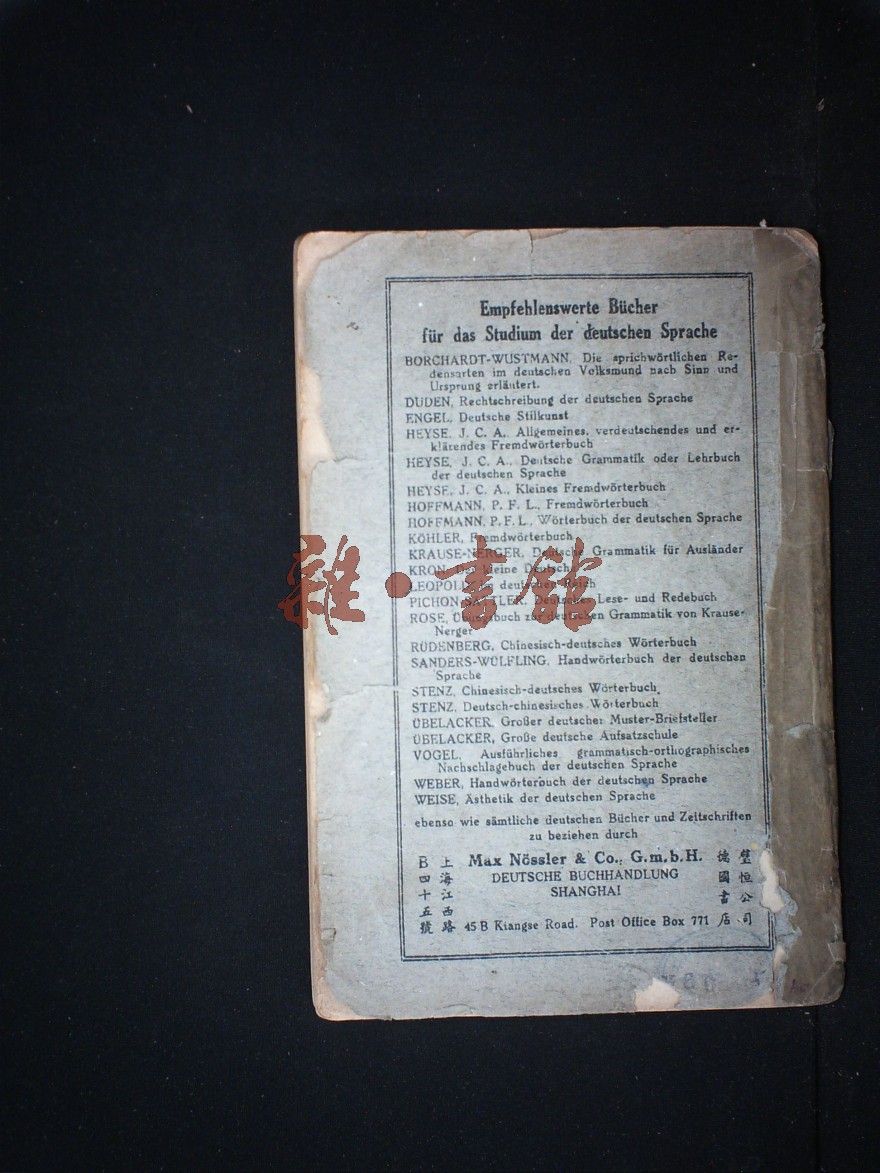 Empfehlenswerte Bücher
für das Studium der deutschen Sprache
BORCHARDT-WUSTMANN, Die sprichwörtlichen Re-
densarten im deutschen Volksmund nach Sinn und
Ursprung erläutert.
DUDEN, Rechtschreibung der deutschen Sprache
ENGEL, Deutsche Stilkunst
HEYSE, J. C. A., Allgemeines, verdeutschendes und er-
klärendes Fremdwörterbuch
HEYSE, J. C. A., Deutsche Grammatik oder Lehrbuch
der deutschen Sprache
HEYSE, J. C. A., Kleines Fremdwörterbuch
HOFFMANN, P. F. L., Fremdwörterbuch
HOFFMANN, P. F. L., Wörterbuch der deutschen Sprache
KÖHLER, Fremdwörterbuch
KRAUSE-NERGER, Deutsche Grammatik für Ausländer
KRON, Der kleine Deutsche
LEOPOLD, Im deutschen Reich
PICHON-SATTLER, Deutsches Lese- und Redebuch
ROSE, Übungsbuch zur deutschen Grammatik von Krause-
Nerger
RÜDENBERG, Chinesisch-deutsches Wörterbuch
SANDERS-WÜLFLING, Handwörterbuch der deutschen
Sprache
STENZ, Chinesisch-deutsches Wörterbuch,
STENZ, Deutsch-chinesisches Wörterbuch
ÜBELACKER, Großer deutscher Muster-Briefsteller
ÜBELACKER, Große deutsche Aufsatzschule
VOGEL, Ausführliches grammatisch-orthographisches
Nachschlagebuch der deutschen Sprache
WEBER, Handwörterbuch der deutschen Sprache
WEISE, Ästhetik der deutschen Sprache
ebenso wie sämtliche deutschen Bücher und Zeitschriften
zu beziehen durch
Max Nössler & Co., G.m.b.H.
DEUTSCHE BUCHHANDLUNG
SHANGHAI
45 B Kiangse Road. Post Office Box 771
璧恒公司
德國書店
上海江西路
B四十五號
雜·書館